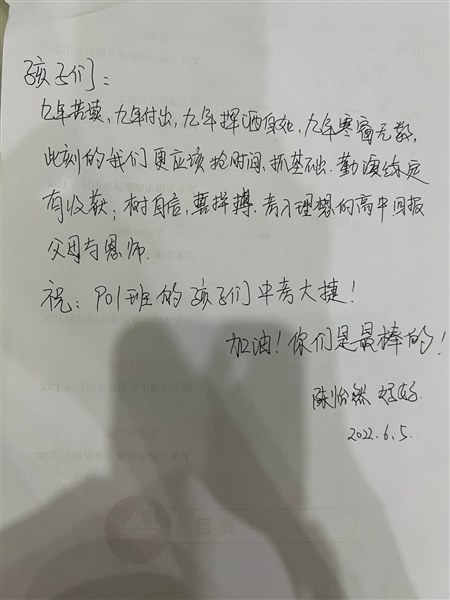 孩子们：
九年苦读，九年付出，九年挥洒自如，九年寒窗无数，
此刻的我们更应该抢时间，抓基础．勤演练定
有收获；树自信，要拼搏．考入理想的高中回报
父母与恩师．
祝：901班的孩子们中考大捷！
加油！你们是最棒的！
陈怡然 妈妈．
2022．6．5．